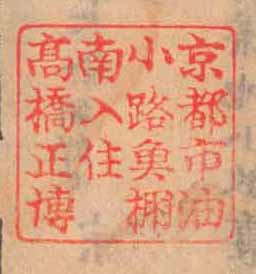 京都市油
小路魚棚
南入住
髙橋正博